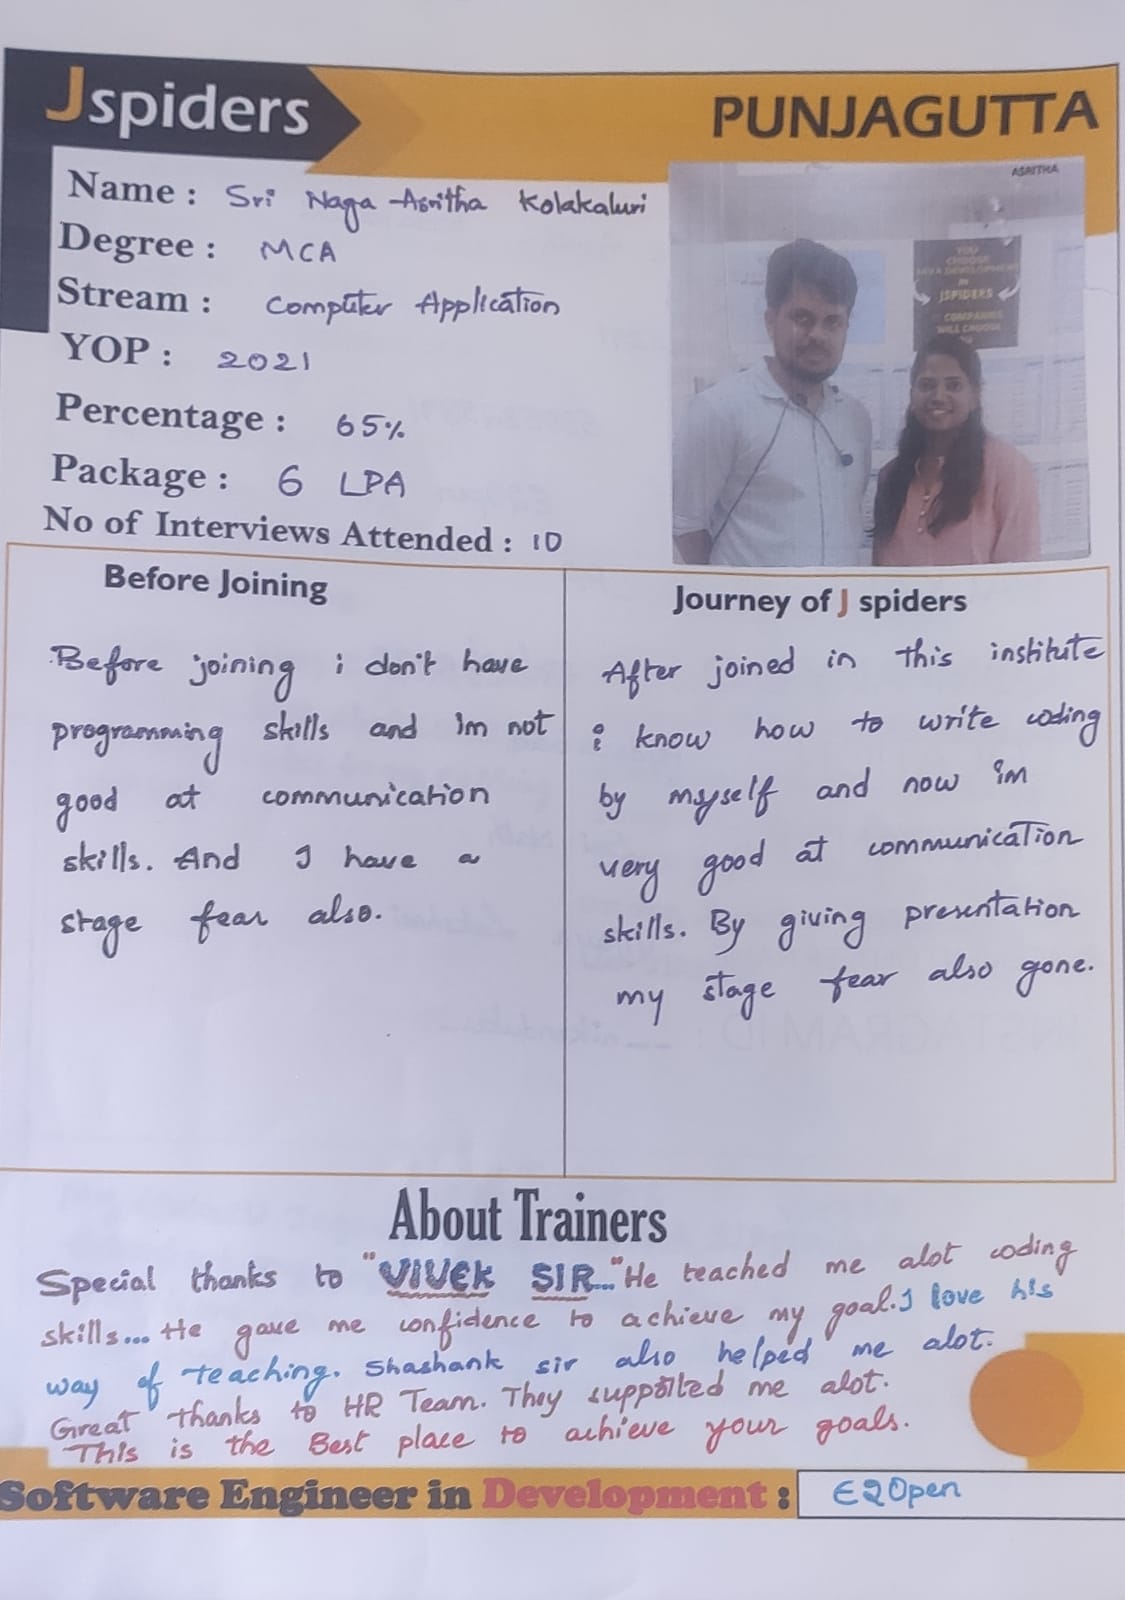 Jspiders
PUNJAGUTTA
Name : Sri Naga Asritha Kolakaluri
Degree : MCA
Stream : Computer Application
YOP : 2021
Percentage : 65%
Package : 6 LPA
No of Interviews Attended : 10
ASRITHA
YOU
CHOOSE
JAVA DEVELOPMENT
IN
JSPIDERS
COMPANIES
WILL CHOOSE
Before Joining
Before joining i don't have
programming skills and Im not
good at communication
skills. And I have a
stage fear also.
Journey of J spiders
After joined in this institute
i know how to write coding
by myself and now im
very good at communication
skills. By giving presentation
my stage fear also gone.
About Trainers
Special thanks to "VIVEK SIR..." He teached me alot coding
skills... He gave me confidence to achieve my goal. I love his
way of teaching. Shashank sir also helped me alot.
Great thanks to HR Team. They supported me alot.
This is the Best place to achieve your goals.
Software Engineer in Development : E2Open